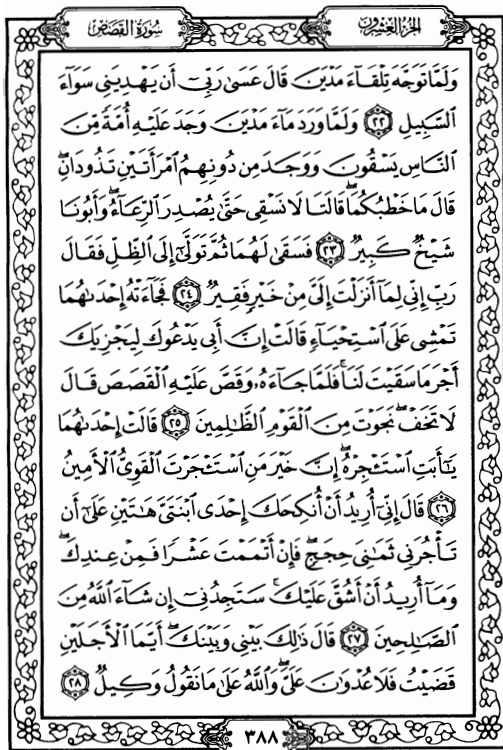 سُورَةُ القَصَصِ
الجُزءُ العِشْرُون
وَلَمَّا تَوَجَّهَ تِلْقَآءَ مَدْيَنَ قَالَ عَسَىٰ رَبِّىٓ أَن يَهْدِيَنِى سَوَآءَ
ٱلسَّبِيلِ ٢٢ وَلَمَّا وَرَدَ مَآءَ مَدْيَنَ وَجَدَ عَلَيْهِ أُمَّةً مِّنَ
ٱلنَّاسِ يَسْقُونَ وَوَجَدَ مِن دُونِهِمُ ٱمْرَأَتَيْنِ تَذُودَانِۖ
قَالَ مَا خَطْبُكُمَاۖ قَالَتَا لَا نَسْقِى حَتَّىٰ يُصْدِرَ ٱلرِّعَآءُۖ وَأَبُونَا
شَيْخٌ كَبِيرٌ ٢٣ فَسَقَىٰ لَهُمَا ثُمَّ تَوَلَّىٰٓ إِلَى ٱلظِّلِّ فَقَالَ
رَبِّ إِنِّى لِمَآ أَنزَلْتَ إِلَىَّ مِنْ خَيْرٍ فَقِيرٌ ٢٤ فَجَآءَتْهُ إِحْدَىٰهُمَا
تَمْشِى عَلَى ٱسْتِحْيَآءٍ قَالَتْ إِنَّ أَبِى يَدْعُوكَ لِيَجْزِيَكَ
أَجْرَ مَا سَقَيْتَ لَنَاۚ فَلَمَّا جَآءَهُۥ وَقَصَّ عَلَيْهِ ٱلْقَصَصَ قَالَ
لَا تَخَفْۖ نَجَوْتَ مِنَ ٱلْقَوْمِ ٱلظَّٰلِمِينَ ٢٥ قَالَتْ إِحْدَىٰهُمَا
يَٰٓأَبَتِ ٱسْتَـْٔجِرْهُۖ إِنَّ خَيْرَ مَنِ ٱسْتَـْٔجَرْتَ ٱلْقَوِىُّ ٱلْأَمِينُ
٢٦ قَالَ إِنِّىٓ أُرِيدُ أَنْ أُنكِحَكَ إِحْدَى ٱبْنَتَىَّ هَٰتَيْنِ عَلَىٰٓ أَن
تَأْجُرَنِى ثَمَٰنِىَ حِجَجٍۖ فَإِنْ أَتْمَمْتَ عَشْرًا فَمِنْ عِندِكَۖ
وَمَآ أُرِيدُ أَنْ أَشُقَّ عَلَيْكَۚ سَتَجِدُنِىٓ إِن شَآءَ ٱللَّهُ مِنَ
ٱلصَّٰلِحِينَ ٢٧ قَالَ ذَٰلِكَ بَيْنِى وَبَيْنَكَۖ أَيَّمَا ٱلْأَجَلَيْنِ
قَضَيْتُ فَلَا عُدْوَٰنَ عَلَىَّۖ وَٱللَّهُ عَلَىٰ مَا نَقُولُ وَكِيلٌ ٢٨
٣٨٨